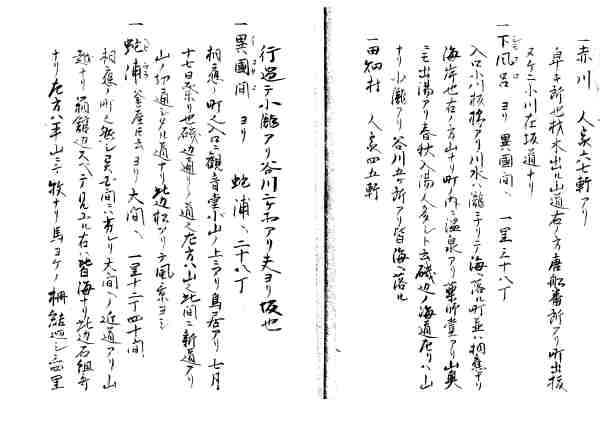 一赤川 人家六七軒アリ
阜キ所也材木出ル山道右ノ方唐船番所アリ町出抜
ヌケニ小川在坂道ナリ
一下風呂ヨリ異國間ヘ 一里三十八丁
入口小川板橋アリ川水ハ瀧ニナリテ海ヘ落ル町並ハ相應ナリ
海岸也右ノ方山ナリ町内ニ温泉アリ薬師堂アリ山奥
ニモ出湯アリ春秋入湯人多シト云磯辺ノ海道左リハ山
ナリ小瀧アリ谷川五ケ所アリ皆海ヘ落ル
一田畑村 人家四五軒
行過テ小瀧アリ谷川二ケ所アリ夫ヨリ坂也
一異國間ヨリ 蛇浦ヘ二十八丁
相應ノ町也入口ニ観音堂小山ノ上ニアリ鳥居アリ七月
十七日祭リ也磯辺通リノ道也左方ハ山也此間ニ新道アリ
山ノ切通シタル道ナリ此辺松アリテ風景ヨシ
一蛇浦 ヨリ大間ヘ 一里十二丁四十間
相應ノ町也 大間ヘノ近道アリ山
越ナリ箱館辺スベテ見ユル右ハ皆海ナリ此辺石組奇
ナリ左方ハ平山ニテ牧ナリ馬ヨケノ柵結廻シ